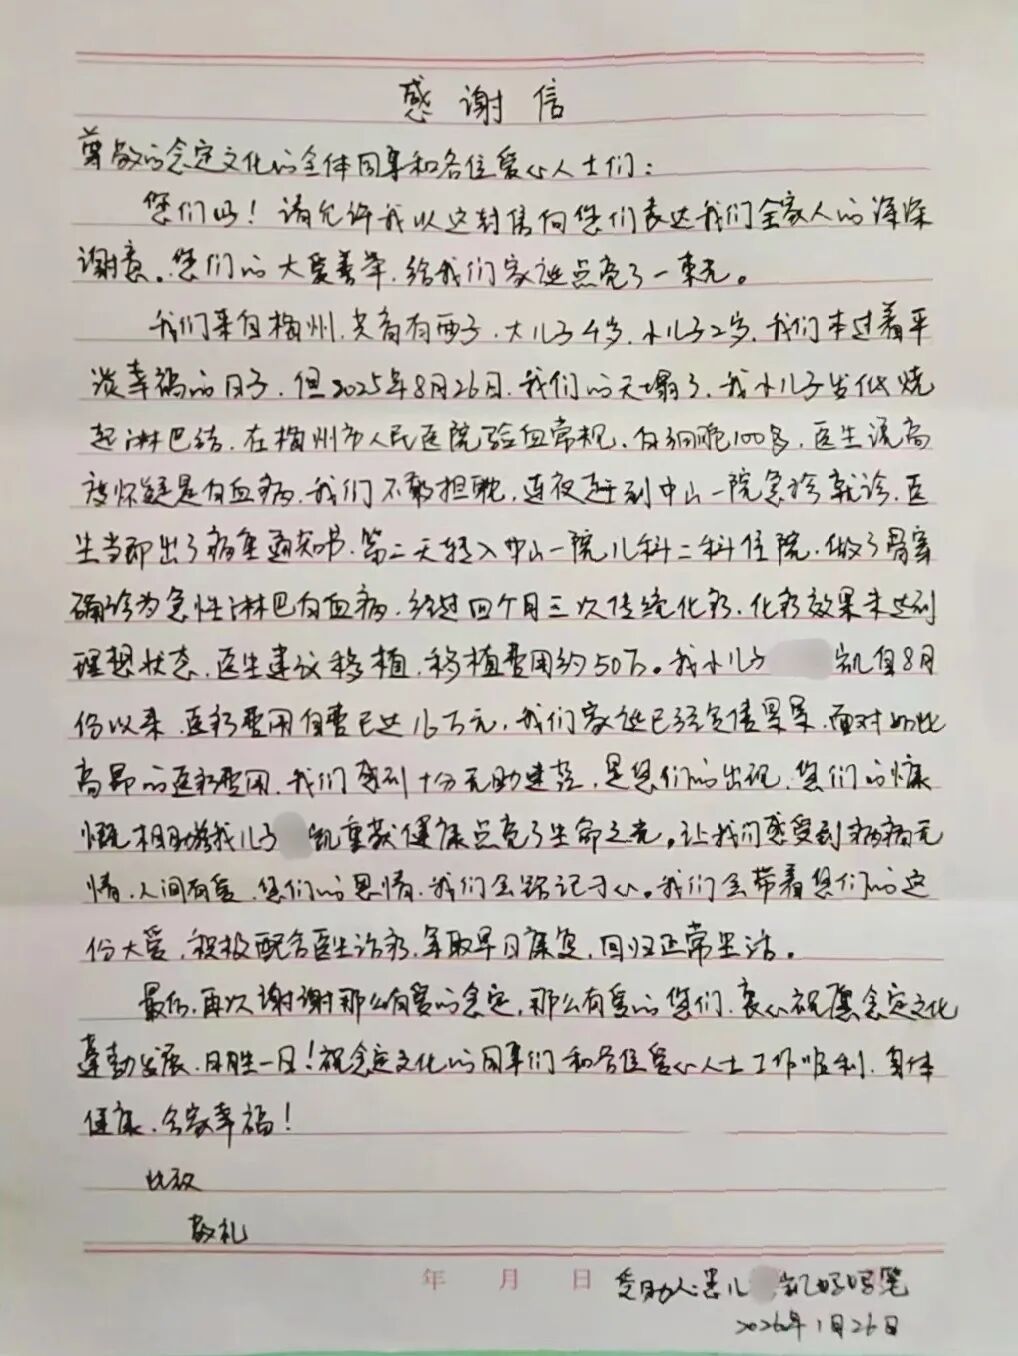 感谢信
尊敬的念定文化的全体同事和各位爱心人士们：
您们好！请允许我以这封信向您们表达我们全家人的深深
谢意。您们的大爱善举，给我们家庭点亮了一束光。
我们来自梅州，共育有两子，大儿子4岁，小儿子2岁，我们本过着平
淡幸福的日子，但2025年8月26日，我们的天塌了，我小儿子发低烧
起淋巴结，在梅州市人民医院验血常规，白细胞100多，医生说高
度怀疑是白血病，我们不敢担耽，连夜赶到中山一院急诊就诊，医
生当即出了病重通知书，第二天转入中山一院儿科二科住院，做了骨穿
确诊为急性淋巴白血病，经过四个月三次传统化疗，化疗效果未达到
理想状态，医生建议移植，移植费用约50万。我小儿子 凯自8月
份以来，医疗费用自费已达16万元，我们家庭已经负债累累，面对如此
高昂的医疗费用，我们感到十分无助迷茫，是您们的出现，您们的慷
慨相助给我儿子 凯重获健康点亮了生命之光。让我们感受到病痛无
情，人间有爱，您们的恩情，我们会铭记于心。我们会带着您们的这
份大爱，积极配合医生治疗，争取早日康复，回归正常生活。
最后，再次谢谢那么有爱的念定，那么有爱的您们，衷心祝愿念定文化
蓬勃发展，日胜一日！祝念定文化的同事们和各位爱心人士工作顺利，身体
健康，合家幸福！
此致
敬礼
年 月 日
受助人：患儿 凯妈妈笔
2026年1月26日